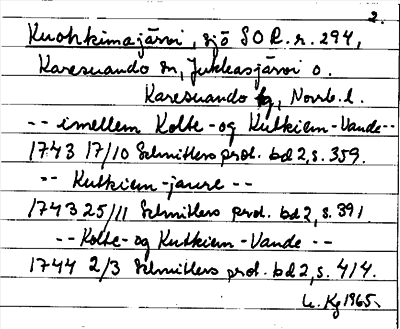 2.
Kuohkimajärvi, sjö SO R.r. 294,
Karesuando sn, Jukkasjärvi o.
Karesuando tg, Norrb. l.
-- imellem Kolte- og Kutkiem-Vande --
1743 17/10 Schnitlers prot. bd 2, s. 359.
-- Kutkiem-jaure --
1743 25/11 Schnitlers prot. bd 2, s. 391.
-- Kolte- og Kutkiem-Vande --
1744 2/3 Schnitlers prot. bd 2, s. 414.
Kg 1965.